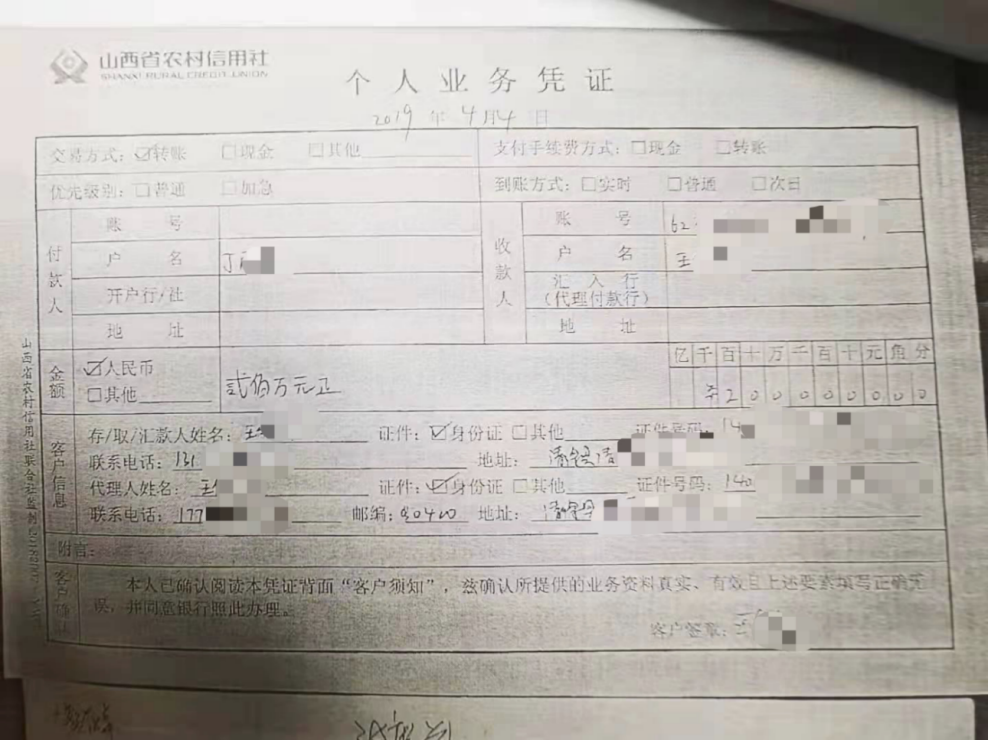 山西省农村信用社
SHANXI RURAL CREDIT UNION
个人业务凭证
2019 年 4 月 4 日
交易方式：☑转账 □现金 □其他 支付手续费方式：□现金 □转账
优先级别：□普通 □加急 到账方式：□实时 □普通 □次日
付款人
账号
户名 丁
开户行/社
地址
收款人
账号 62
户名 王
汇入行
（代理付款行）
地址
金额
☑人民币
□其他
贰佰万元正
亿 千 百 十 万 千 百 十 元 角 分
2 0 0 0 0 0 0 0 0
客户信息
存/取/汇款人姓名：王 证件：☑身份证 □其他 证件号码：14
联系电话：131 地址：
代理人姓名：王 证件：☑身份证 □其他 证件号码：140
联系电话：177 邮编： 地址：
附言：
客户确认
本人已确认阅读本凭证背面“客户须知”，兹确认所提供的业务资料真实、有效且上述要素填写正确无
误，并同意银行照此办理。
客户签章：王
山西省农村信用社联合社监制